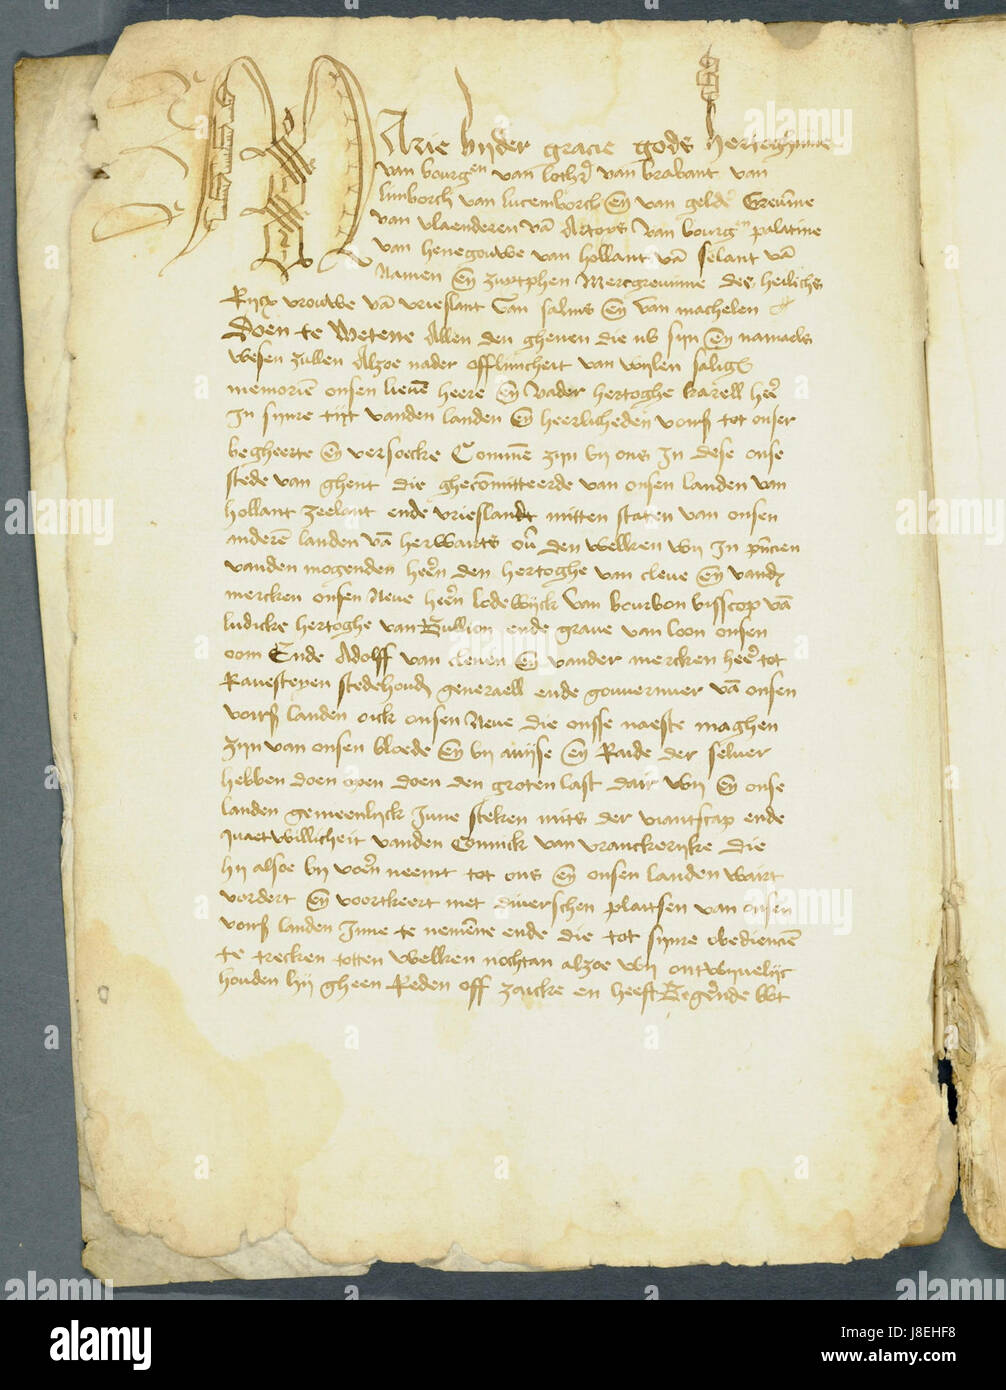 Marie bijder gracie gods hertoghinne
van bourgen van lothr van brabant van
limborch van lucemborch en van gelde Grevine
van vlaenderen va Artois van bourgn palatine
van henegouwe van hollant va selant va
Namen en zutphen Mercgrevinne des heilichs
Rijcx vrouwe va vrieslant van salins en van machelen
Doen te wetene Allen den ghenen die nu sijn en namaels
wesen zullen Alzoe nader afflivicheit van wijlen salig
memorien onsen lieve heere en vader hertoghe karell heer
In sijnre tijt vanden landen en heerlicheden voirs tot onser
begheerte en versoecke Comme zijn bij ons In dese onse
stede van ghent die ghecomitteerde van onsen landen van
hollant zeelant ende vrieslandt mitten staten van onsen
anderen landen va herwaerts ou den welken wij In
vanden mogenden heeren den hertoghe van cleve en vand
mercken onsen Neve heern lodewijck van bourbon bisscop va
ludicke hertoghe van Bullion ende grave van loon onsen
oom Ende Adolff van cleven en vander mercken heer tot
Ravesteyen stedehoud generaell ende gouverneer va onsen
voirs landen oick onsen Neve die onsse naeste maghen
zijn van onsen bloede en bij avijse en Raide der selver
hebben doen open doen den groten last dair wij en onse
landen gemeenlijck Inne steken mits der viantscap ende
quaetwillicheit vanden Coninck van vranckerijke die
hij alsoe bij voern neemt tot ons en onsen landen wairt
vordert en voortkeert met diverschen plaetsen van onsen
voirs landen Inne te nemene ende die tot sijnre obediencien
te trecken totten welken nochtan alzoe wij ontwivelijc
houden hij gheen Reden off zaicke en heeft wt
alamy
J8EHF8
www.alamy.com